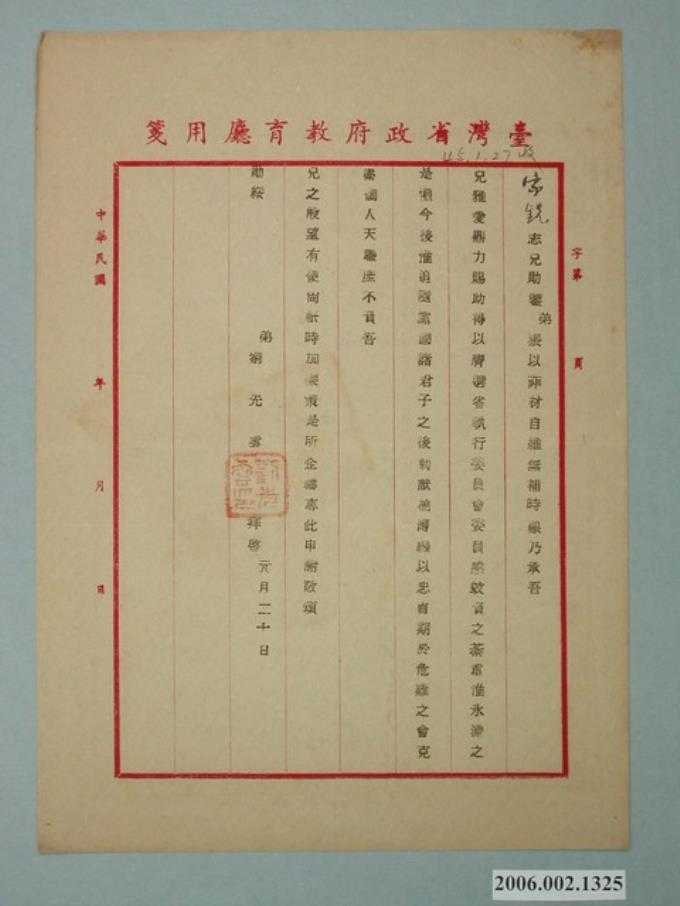 臺灣省政府教育廳用箋
45.1.27收
字第 頁
家銳志兄勛鑒弟猥以菲材自維無補時艱乃承吾
兄雅愛鼎力賜助得以膺選省執行委員會委員感效負之綦重淮氷淵之
是懼今後准追隨黨國諸君子之後勉獻棉薄以忠貞期於危難之會克
盡國人天職庶不負吾
兄之殷望有便尚祈時加是所企禱專此申謝敬頌
勛綏
弟劉光 拜啓 元月二十日
中華民國 年 月 日
2006.002.1325